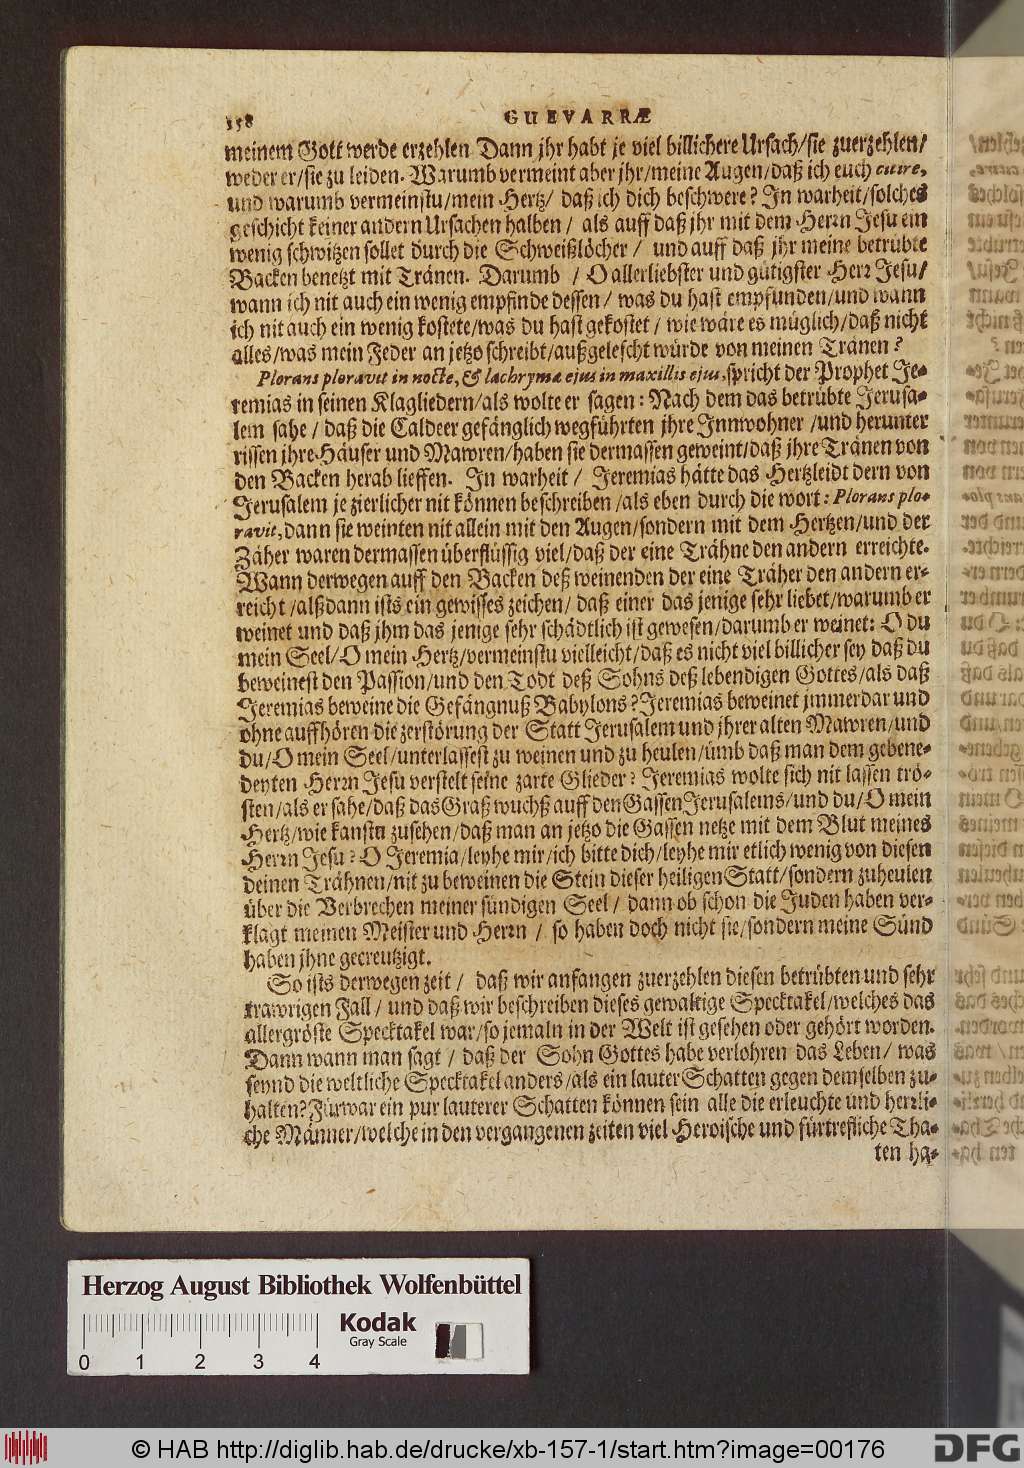 158 GUEVARRÆ
meinem Gott werde erzehlen Dann jhr habt je viel billichere Ursach/sie zuerzehlen/
weder er/sie zu leiden. Warumb vermeint aber jhr/meine Augen/daß ich euch
und warumb vermeinstu/mein Hertz/ daß ich dich beschwere? In warheit/solches
geschicht keiner andern Ursachen halben/ als auff daß jhr mit dem Herrn Jesu ein
wenig schwitzen sollet durch die Schweißlöcher/ und auff daß jhr meine betrübte
Backen benetzt mit Tränen. Darumb / O allerliebster und gütigster Herr Jesu/
wann ich nit auch ein wenig empfinde dessen/ was du hast empfunden/und wann
ich nit auch ein wenig kostete/was du hast gekostet/ wie wäre es müglich/daß nicht
alles/was mein Feder an jetzo schreibt/außgelescht würde von meinen Tränen?
Plorans ploravit in nocte, & lachrymæ ejus in maxillis ejus, spricht der Prophet Je-
remias in seinen Klagliedern/als wolte er sagen: Nach dem das betrübte Jerusa-
lem sahe/ daß die Caldeer gefänglich wegführten jhre Innwohner /und herunter
rissen jhre Häuser und Mawren/haben sie dermassen geweint/daß jhre Tränen von
den Backen herab lieffen. In warheit/ Jeremias hätte das Hertzleidt dern von
Jerusalem je zierlicher nit können beschreiben/als eben durch die wort: Plorans plo-
ravit, dann sie weinten nit allein mit den Augen/sondern mit dem Hertzen/und der
Zäher waren dermassen überflüssig viel/daß der eine Trähne den andern erreichte.
Wann derwegen auff den Backen deß weinenden der eine Träher den andern er-
reicht/alßdann ists ein gewisses zeichen/ daß einer das jenige sehr liebet/warumb er
weinet und daß jhm das jenige sehr schädtlich ist gewesen/darumb er weinet: O du
mein Seel/O mein Hertz/vermeinstu vielleicht/daß es nicht viel billicher sey daß du
beweinest den Passion/und den Todt deß Sohns deß lebendigen Gottes/als daß
Jeremias beweine die Gefängnuß Babylons? Jeremias beweinet jmmerdar und
ohne auffhören die zerstörung der Statt Jerusalem und jhrer alten Mawren/und
du/O mein Seel/unterlassest zu weinen und zu heulen/umb daß man dem gebene-
deyten Herrn Jesu verstelt seine zarte Glieder? Jeremias wolte sich nit lassen trö-
sten/als er sahe/daß das Graß wuchß auff den Gassen Jerusalems/und du/O mein
Hertz/wie kanstu zusehen/daß man an jetzo die Gassen netze mit dem Blut meines
Herrn Jesu? O Jeremia/leyhe mir/ich bitte dich/leyhe mir etlich wenig von diesen
deinen Trähnen/nit zu beweinen die Stein dieser heiligen Statt/sondern zuheulen
über die Verbrechen meiner sündigen Seel/ dann ob schon die Juden haben ver-
klagt meinen Meister und Herrn / so haben doch nicht sie/sondern meine Sünd
haben jhne gecreutzigt.
So ists derwegen zeit/ daß wir anfangen zuerzehlen diesen betrübten und sehr
trawrigen Fall/ und daß wir beschreiben dieses gewaltige Specktakel/welches das
allergröste Specktakel war/so jemaln in der Welt ist gesehen oder gehört worden.
Dann wann man sagt/ daß der Sohn Gottes habe verlohren das Leben/ was
seynd die weltliche Specktakel anders/als ein lauter Schatten gegen demselben zu-
halten? Fürwar ein pur lauterer Schatten können sein alle die erleuchte und herrli-
che Männer/welche in den vergangenen zeiten viel Heroische und fürtrefliche Tha-
ten ha-
Herzog August Bibliothek Wolfenbüttel
Kodak
Gray Scale
0 1 2 3 4
© HAB http://diglib.hab.de/drucke/xb-157-1/start.htm?image=00176
DFG